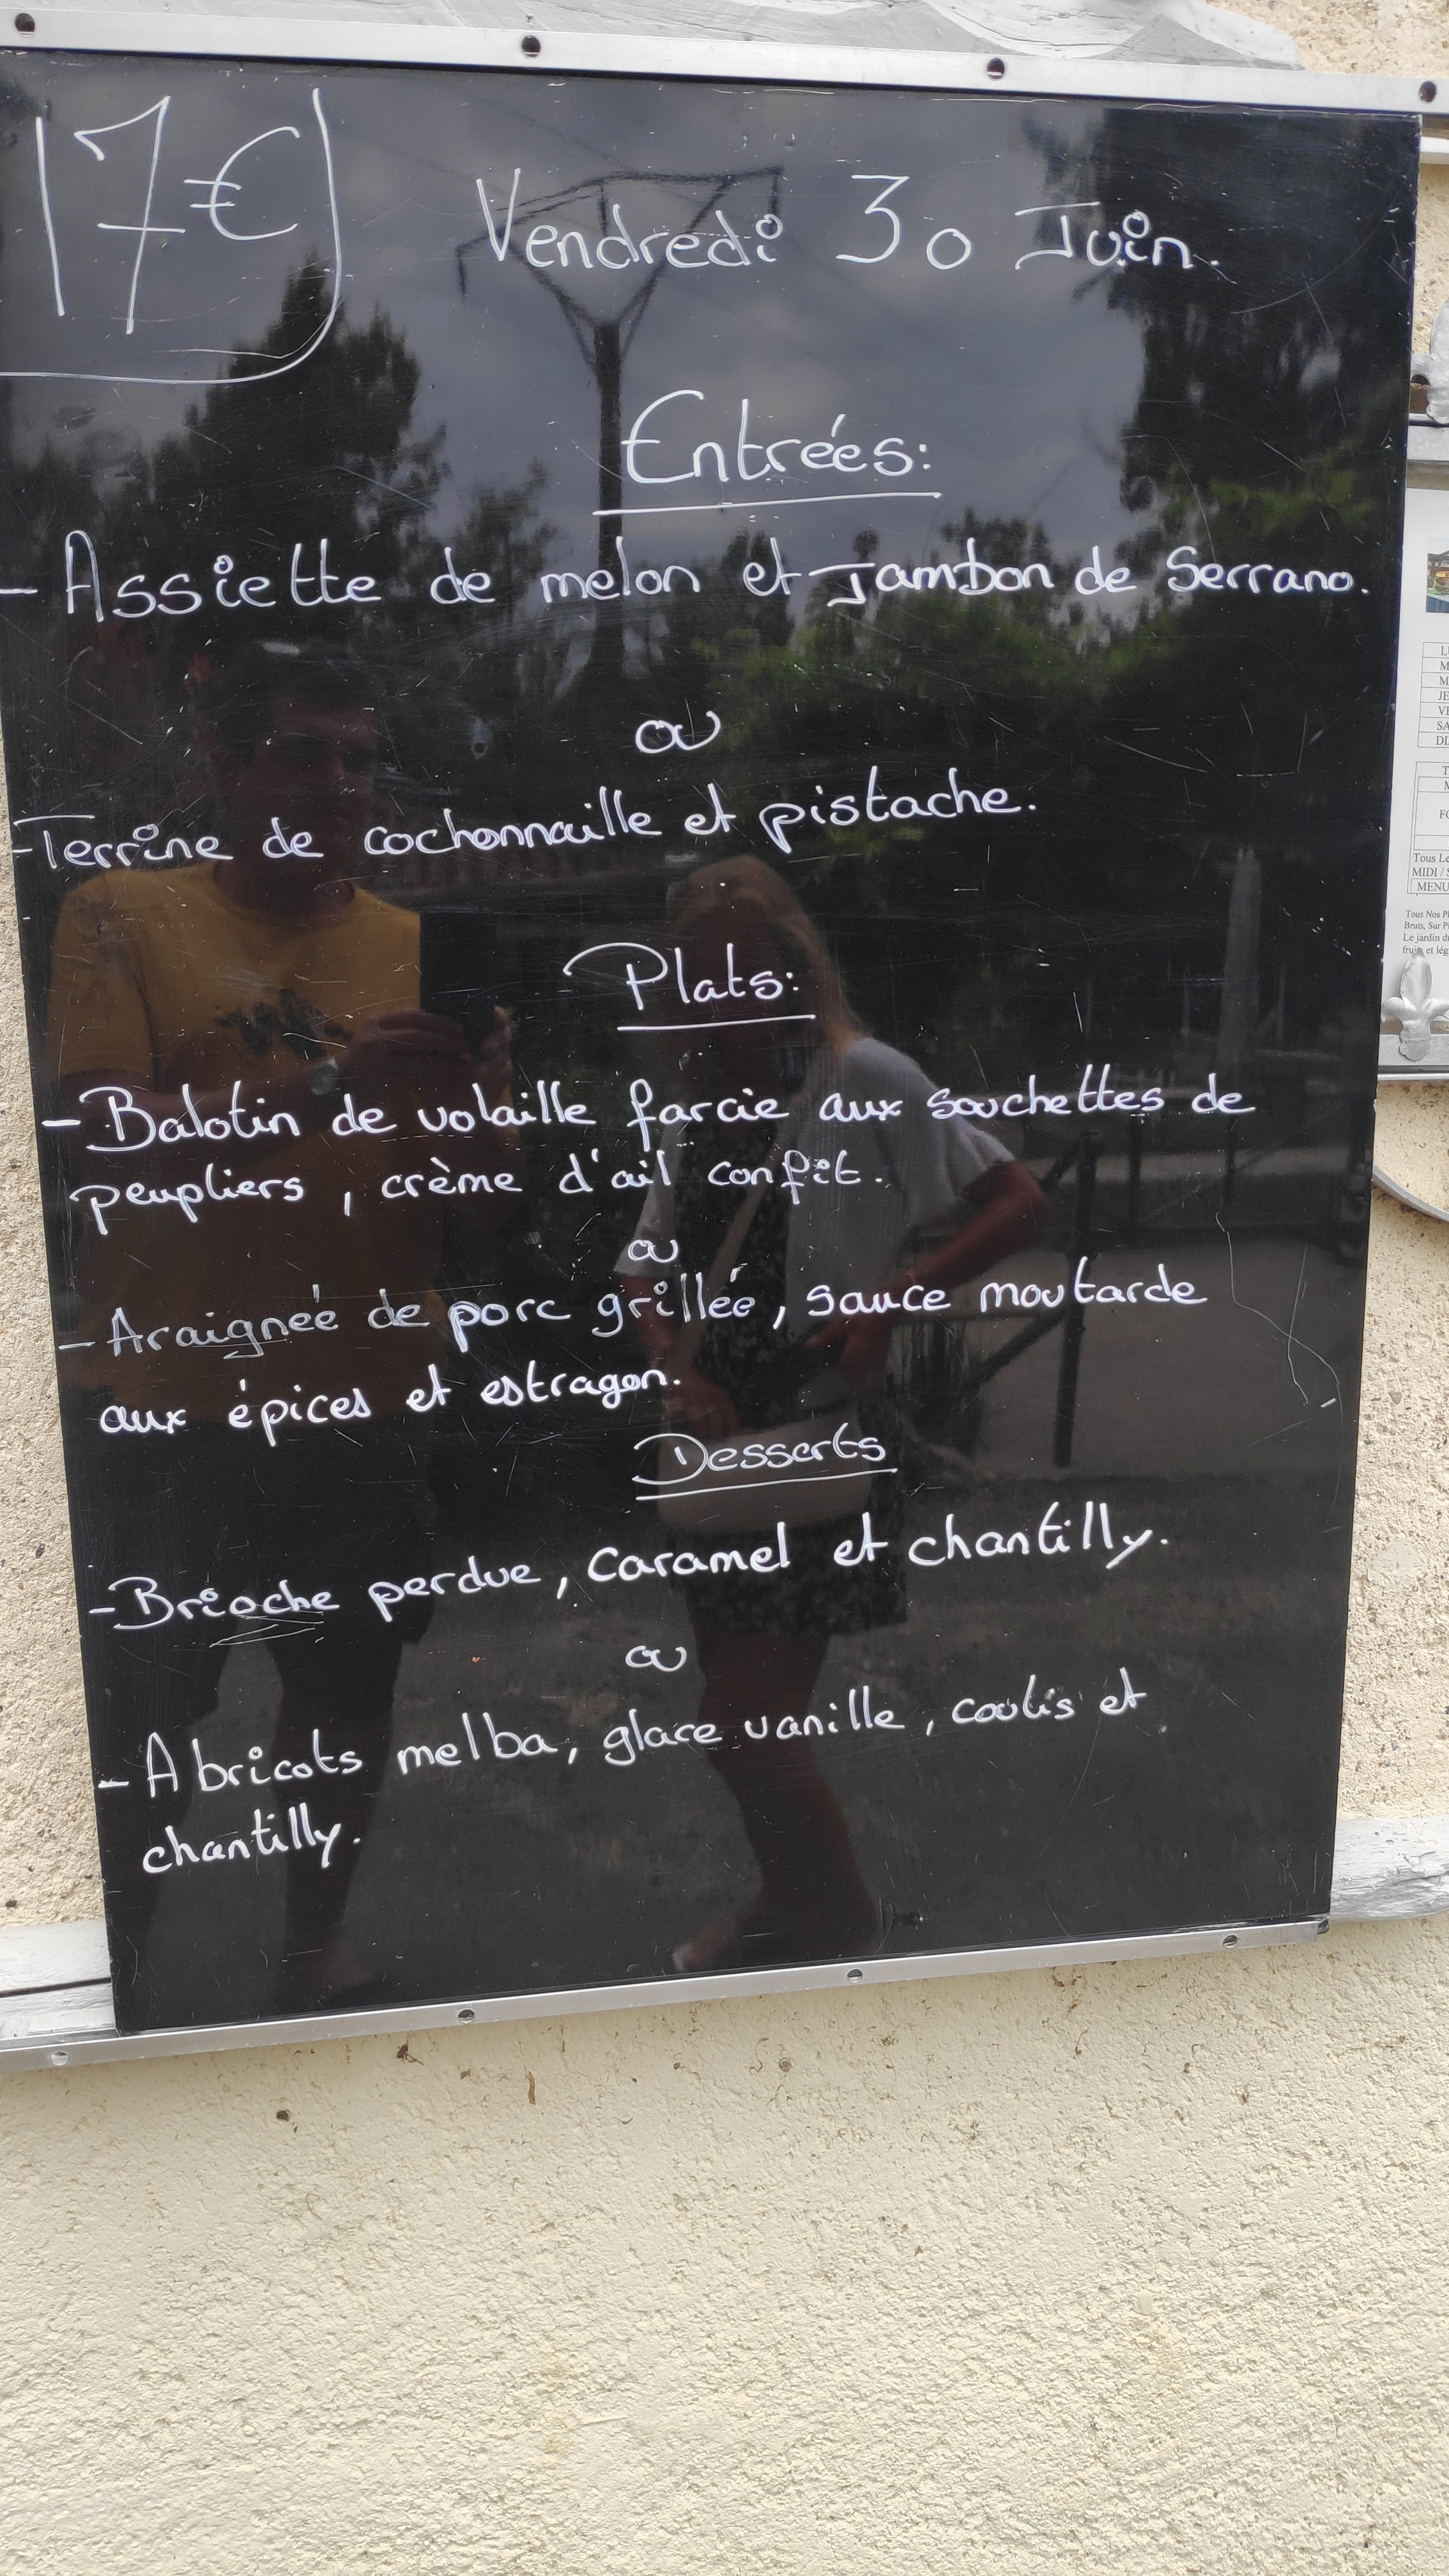 17€
Vendredi 30 Juin.
Entrées:
- Assiette de melon et Jambon de Serrano.
ou
- Terrine de cochonnaille et pistache.
Plats:
- Balotin de volaille farcie aux souchettes de
peupliers, crème d'ail confit.
ou
- Araignée de porc grillée, sauce moutarde
aux épices et estragon.
Desserts
- Brioche perdue, Caramel et chantilly.
ou
- Abricots melba, glace vanille, coulis et
chantilly.
Tous Le
MIDI /
MENU
Tous Nos
Bruts, Sur
Le jardin
et